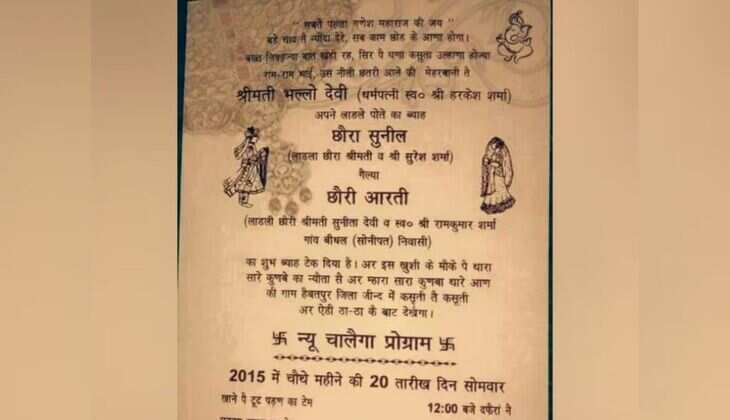 " सबतै पहल्यां गणेश महाराज की जय "
बड़े चाव तै न्यौंदा देरे, सब काम छोड के आणा होगा।
बखत लिकड़ज्या बात खड़ी रह, सिर पै घणा कसूता उल्हाणा होज्या
राम-राम भाई, उस नीली छतरी आले की मेहरबानी ते
श्रीमती भल्लो देवी (धर्मपत्नी स्व० श्री हरकेश शर्मा)
अपने लाडले पोते का ब्याह
छौरा सुनील
(लाडला छौरा श्रीमती व श्री सुरेश शर्मा)
गैल्या
छौरी आरती
(लाडली छोरी श्रीमती सुनीता देवी व स्व० श्री रामकुमार शर्मा
गांव बीधल (सोनीपत) निवासी)
का शुभ ब्याह टेक दिया है। अर इस खुशी के मौके पे थारा
सारे कुणबे का न्यौता सै अर म्हारा सारा कुणबा थारे आण
की गाम हैबतपुर जिला जीन्द में कसूत्ती तै कसूती
अर ऐड्डी ठा-ठा के बाट देखेगा।
卐 न्यू चालैगा प्रोग्राम 卐
2015 में चौथे महीने की 20 तारीख दिन सोमवार
खाने पै टूट पड़ण का टेम 12:00 बजे दफैरां नै